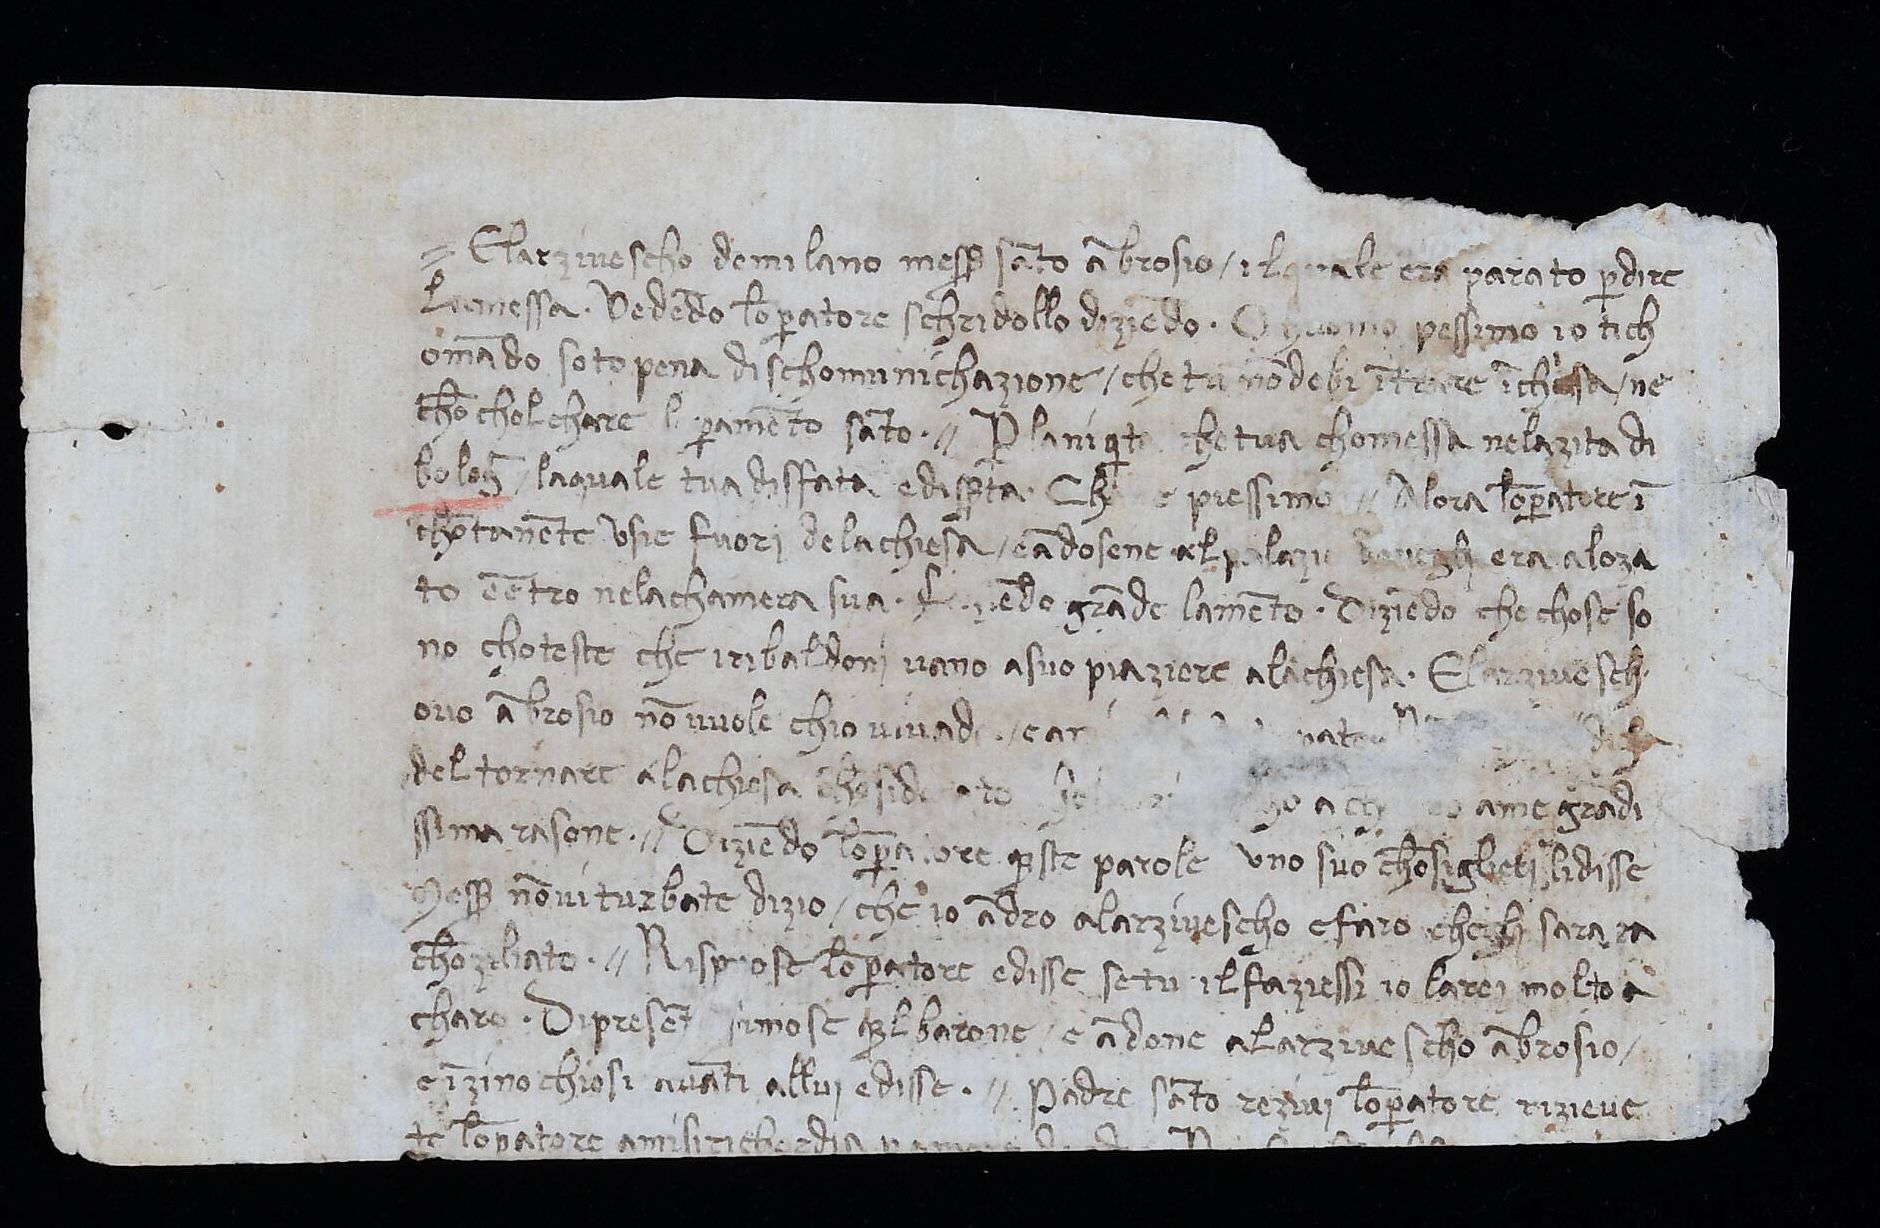 = Elarzivescho demilano mesp sāto ābrosio / ilquale era parato pdire
lamessa . Vedēdo lōpatore schridollo diziēdo . O huomo pessimo io tich
omādo soto pena dischomunichazione / chetu nōdebi ītrare īchiesa / ne
chō cholchare l pamēto sāto . // P laniqta chetua chomessa nelazita di
bologn̄ / laquale tua disfata edispta . Ch piessimo // Alora lōpatore ī
chōtanēte usie fuori delachiesa / eādosene alpalazo era aloza
to ēētro nelachamera sua . grāde lamēto . Diziēdo che chose so
no choteste che iribaldoni uano asuo piaziere alachiesa . Elarzivesch
ouo ābrosio nō vuole chio
deltornare alachiesa ame grādi
ssima rasone . // Diziēdo lōpatore qste parole uno suo chōsiglieri lidisse
Mesp nōui turbate dizio / che io ādro alarzivescho efaro sara ra
chōziliato . // Rispose lōpatore edisse setu ilfaziessi io larei molto a
charo . Dipresēt mose qlbarone / e ādone alarzivescho ābrosio /
eīzinochiosi auāti allui edisse . // Padre sāto rezivi lōpatore rizieve
te lōpatore amisirichordia